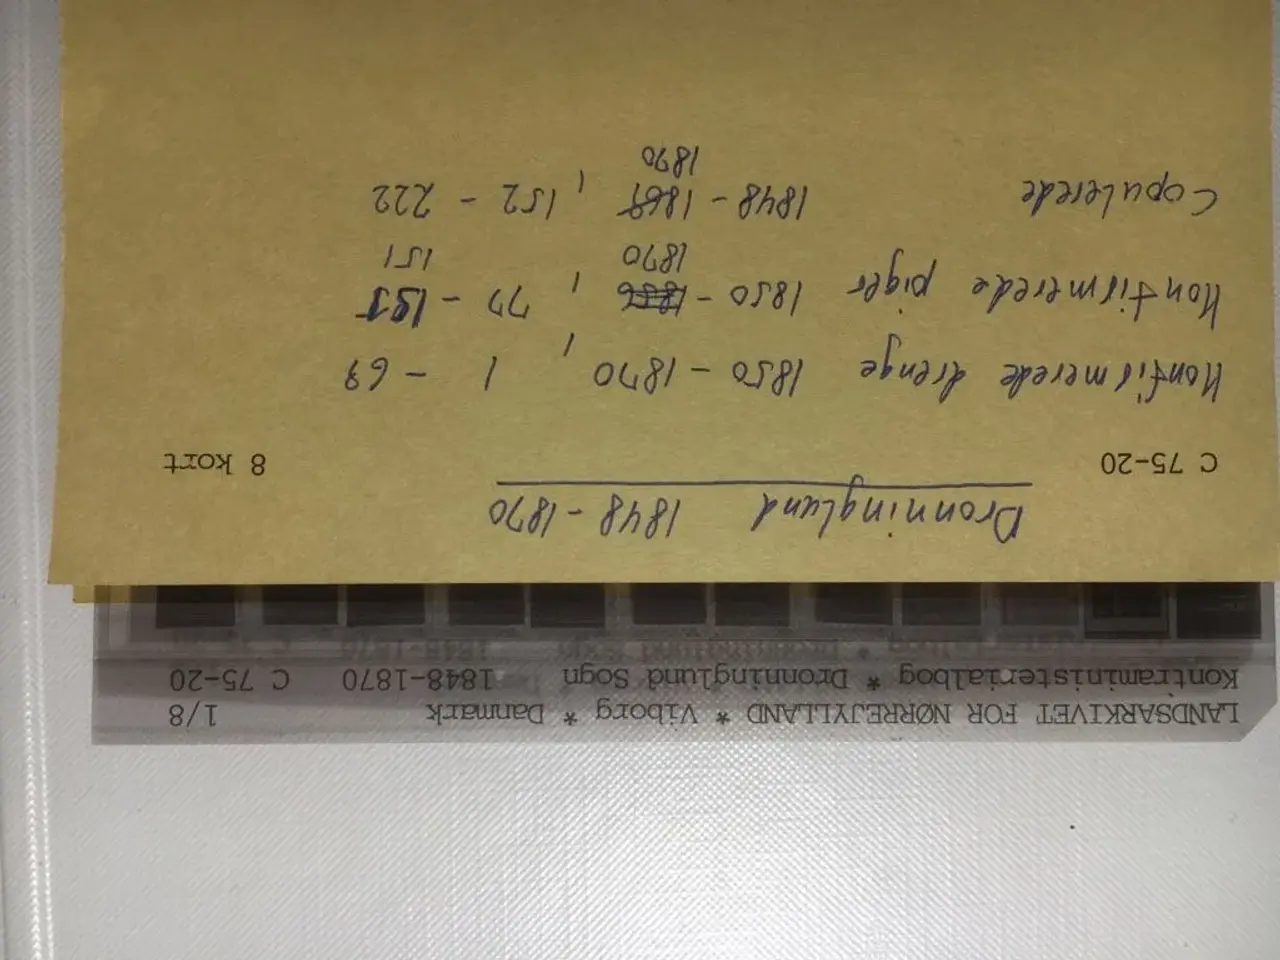 LANDSARKIVET FOR NØRREJYLLAND * Viborg * Danmark 1/8
Kontraministerialbog * Dronninglund Sogn 1848-1870 C 75-20
Dronninglund 1848-1870
C 75-20 8 kort
Konfirmerede drenge 1850-1870, 1-69
Konfirmerede piger 1850- 1870, 77-151
Copulerede 1848- 1870, 152-222